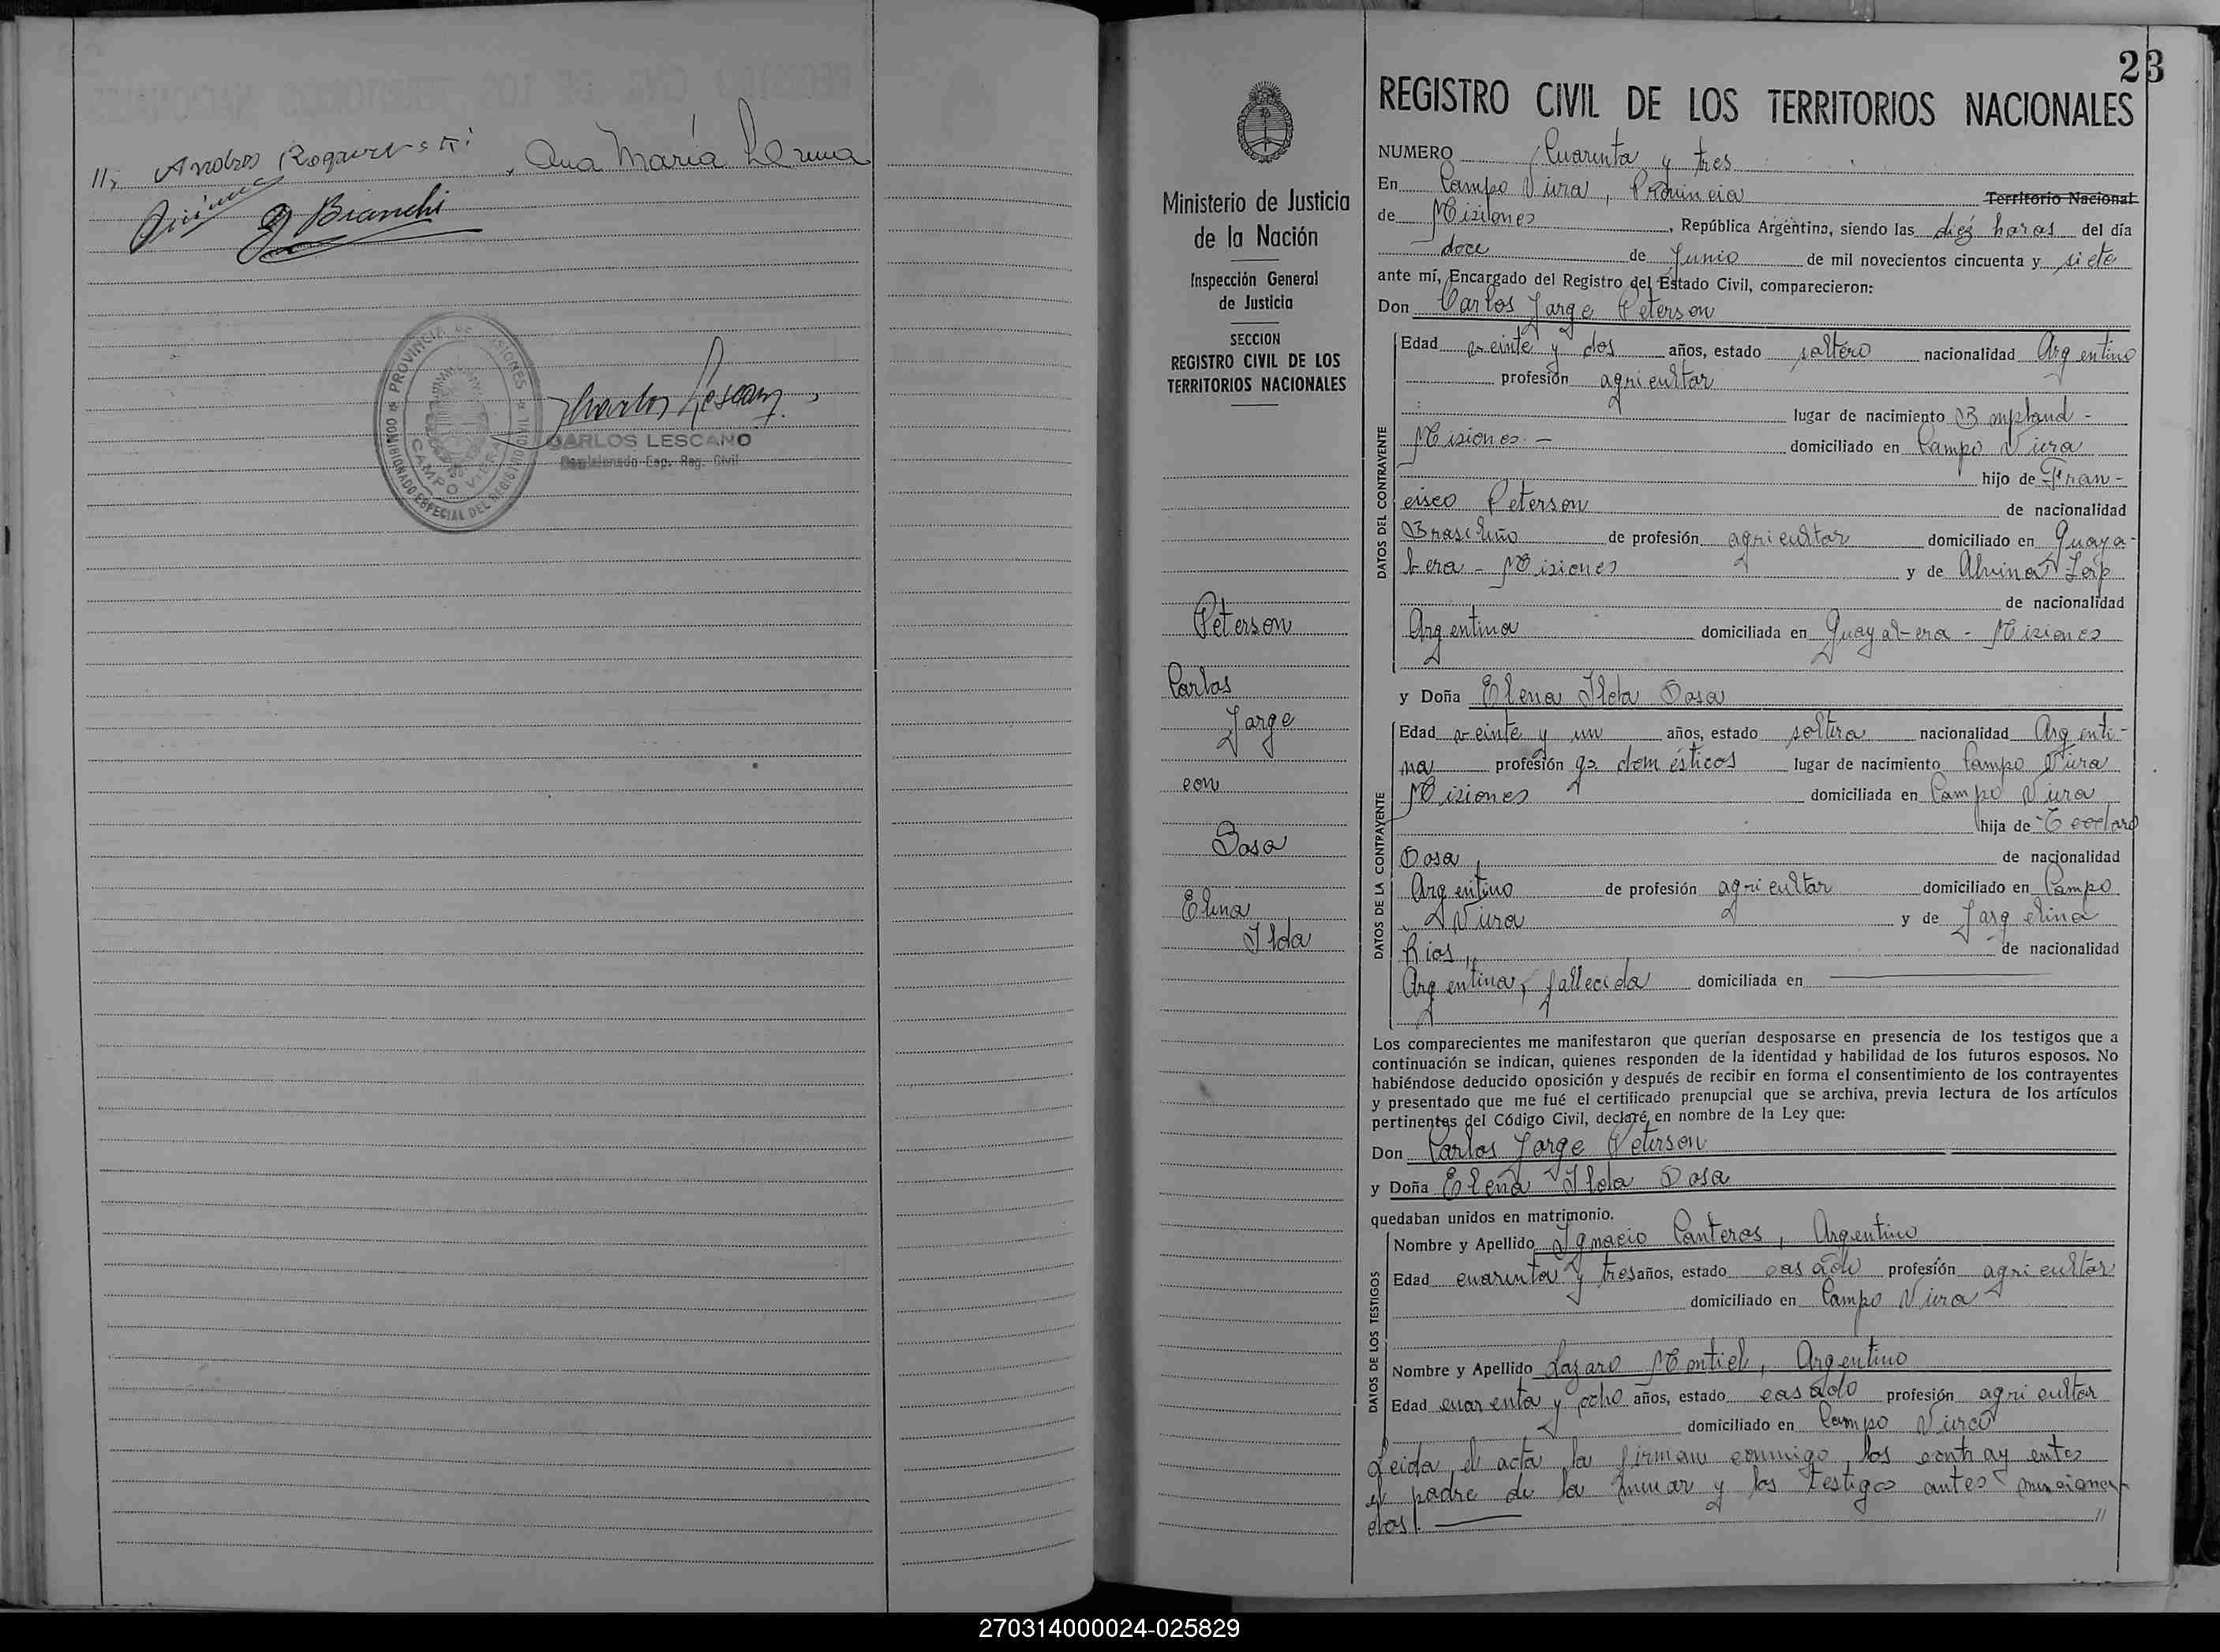 Ana María Lerma
Bianchi
PROVINCIA DE MISIONES
CAMPO VIERA
COMISIONADO ESPECIAL DEL REGISTRO CIVIL
CARLOS LESCANO
Comisionado Esp. Reg. Civil
23
Ministerio de Justicia
de la Nación
Inspección General
de Justicia
SECCION
REGISTRO CIVIL DE LOS
TERRITORIOS NACIONALES
Peterson
Carlos
Jorge
con
Sosa
Elena
Ilda
REGISTRO CIVIL DE LOS TERRITORIOS NACIONALES
NUMERO Cuarenta y tres
En Campo Viera, Provincia Territorio Nacional
de Misiones, República Argentina, siendo las diez horas del día
doce de Junio de mil novecientos cincuenta y siete
ante mí, Encargado del Registro del Estado Civil, comparecieron:
Don Carlos Jorge Peterson
DATOS DEL CONTRAYENTE
Edad veinte y dos años, estado soltero nacionalidad Argentino
profesión agricultor
lugar de nacimiento Bompland -
Misiones - domiciliado en Campo Viera
hijo de Fran-
cisco Peterson de nacionalidad
Brasileño de profesión agricultor domiciliado en Guaya-
bera - Misiones y de Alvina
de nacionalidad
Argentina domiciliada en Guayabera - Misiones
y Doña Elena Ilda Sosa
DATOS DE LA CONTRAYENTE
Edad veinte y un años, estado soltera nacionalidad Argenti-
na profesión qs. domésticos lugar de nacimiento Campo Viera
Misiones domiciliada en Campo Viera
hija de Teodoro
Sosa, de nacionalidad
Argentino de profesión agricultor domiciliado en Campo
Viera y de Jorgelina
Rios, de nacionalidad
Argentina, fallecida domiciliada en
Los comparecientes me manifestaron que querían desposarse en presencia de los testigos que a
continuación se indican, quienes responden de la identidad y habilidad de los futuros esposos. No
habiéndose deducido oposición y después de recibir en forma el consentimiento de los contrayentes
y presentado que me fué el certificado prenupcial que se archiva, previa lectura de los artículos
pertinentes del Código Civil, declaré, en nombre de la Ley que:
Don Carlos Jorge Peterson
y Doña Elena Ilda Sosa
quedaban unidos en matrimonio.
DATOS DE LOS TESTIGOS
Nombre y Apellido Ignacio Canteros, Argentino
Edad cuarenta y tres años, estado casado profesión agricultor
domiciliado en Campo Viera
Nombre y Apellido Lazaro Montiel, Argentino
Edad cuarenta y ocho años, estado casado profesión agricultor
domiciliado en Campo Viera
Leida el acta la firman conmigo los contrayentes
el padre de la menor y los testigos antes mencionad-
dos. //
270314000024-025829